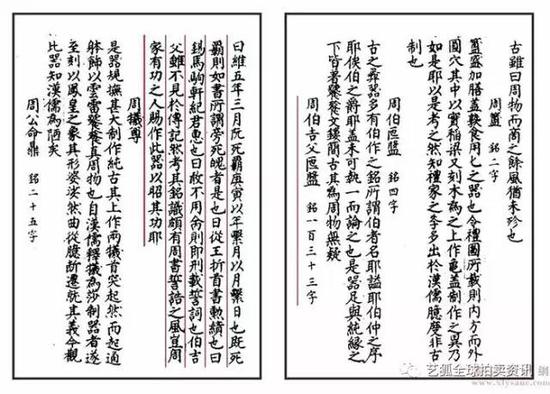 古雖曰周物而商之餘風猶未殄也
周簠 銘二字
簠盛加膳蓋簠食用匕之器也今禮圖所載則内方而外
圓穴其中以實稻粱又刻木為之上作龜蓋制作之異乃
如是耶以是考之然知禮家之學多出於漢儒臆度非古
制也
周伯匜盤 銘四字
古之彝器多有伯作之銘所謂伯者名耶謚耶伯仲之序
耶侯伯之爵耶蓋未可執一而論之也是器足與純緣之
下皆著饕餮文鏤簡古其為周物無疑
周伯吉父匜盤 銘一百三十三字
曰維五年三月既死霸庚寅以年繫月以月繫日也既死
霸則如書所謂旁死魄者是也曰從王折首書勲績也曰
錫馬駒軒紀君惠也曰敢不用命則即刑載誓詞也伯吉
父雖不見於傳記然考其銘識頗有周書誓誥之風豈周
家有功之人賜作此器以昭其功耶
周犧尊
是器規撫甚大制作純古其上作兩犧首突起然而起通
體飾以雲雷饕餮真周物也自漢儒釋犧為莎制器者遂
至刻以鳳皇之象其形婆娑然曲從臆斷遷就其義今觀
此器知漢儒為陋矣
周公命鼎 銘二十五字
艺狐全球拍卖资讯 網